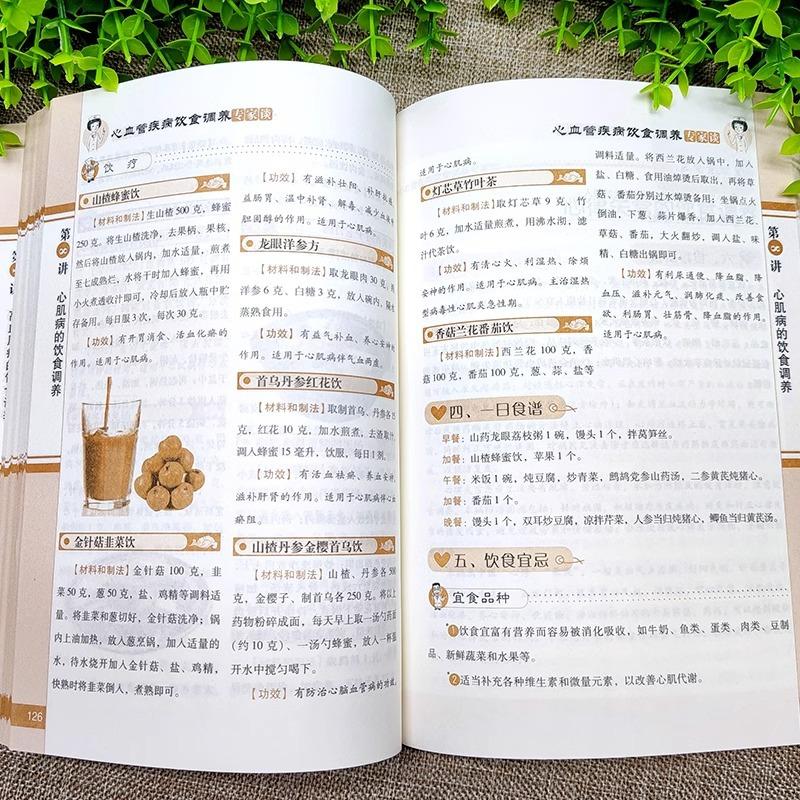 心血管疾病饮食调养专家谈
饮疗
山楂蜂蜜饮
【材料和制法】生山楂 500 克，蜂蜜
250 克。将生山楂洗净，去果柄、果核，
然后将山楂放入锅内，加水适量，煎煮
至七成熟烂，水将干时加入蜂蜜，再用
小火煮透收汁即可，冷却后放入瓶中贮
存备用。每日服 3 次，每次 30 克。
【功效】有开胃消食、活血化瘀的
作用。适用于心肌病。
金针菇韭菜饮
【材料和制法】金针菇 100 克，韭
菜 50 克，葱 50 克，盐、鸡精等调料适
量。将韭菜和葱切好，金针菇洗净；锅
内上油加热，放入葱烹锅，加入适量的
水，待水烧开加入金针菇、盐、鸡精，
快熟时将韭菜倒入，煮熟即可。
【功效】有滋补壮阳、补肝
益肠胃、温中补肾、解毒、减少血液中
胆固醇的作用。适用于心肌病。
龙眼洋参方
【材料和制法】取龙眼肉 30 克，西
洋参 6 克、白糖 3 克，放入碗内，隔水
蒸熟食用。
【功效】有益气补血、养心安神的
作用。适用于心肌病伴气血两虚。
首乌丹参红花饮
【材料和制法】取制首乌、丹参各 15
克，红花 10 克，加水煎煮，去渣取汁，
调入蜂蜜 15 毫升，饮服，每日 1 剂。
【功效】有活血祛瘀、养血安神、
滋补肝肾的作用。适用于心肌病伴心血
瘀阻。
山楂丹参金樱首乌饮
【材料和制法】山楂、丹参各 500
克，金樱子、制首乌各 250 克。将以上
药物粉碎成面，每天早上取一汤勺药面
(约 10 克)、一汤勺蜂蜜，放入一杯温
开水中搅匀喝下。
【功效】有防治心脑血管病的功效，
第
8
讲
心肌病的饮食调养
126
心血管疾病饮食调养专家谈
适用于心肌病。
灯芯草竹叶茶
【材料和制法】取灯芯草 9 克、竹
叶 6 克，加水适量煎煮，用沸水沏，滤
汁代茶饮。
【功效】有清心火、利湿热、除烦
安神的作用。适用于心肌病。主治湿热
型病毒性心肌炎急性期。
香菇兰花番茄饮
【材料和制法】西兰花 100 克，香
菇 100 克，番茄 100 克，葱、蒜、盐等
调料适量。将西兰花放入锅中，加入
盐、白糖、食用油焯烫后取出，再将草
菇、番茄分别过水焯烫备用；坐锅点火
倒油，下葱、蒜片爆香，加入西兰花、
草菇、番茄，大火翻炒，调入盐、味
精、白糖出锅即可。
【功效】有利尿通便、降血脂、降
血压、滋补元气、润肺化痰、改善食
欲、利肠胃、壮筋骨、降血脂的作用。
适用于心肌病。
四、一日食谱
早餐：山药龙眼荔枝粥 1 碗，馒头 1 个，拌莴笋丝。
加餐：山楂蜂蜜饮，苹果 1 个。
午餐：米饭 1 碗，炖豆腐，炒青菜，鹧鸪党参山药汤，二参黄芪炖猪心。
加餐：番茄 1 个。
晚餐：馒头 1 个，双耳炒豆腐，凉拌芹菜，人参当归炖猪心，鲫鱼当归黄芪汤。
五、饮食宜忌
宜食品种
1 饮食宜富有营养而容易被消化吸收，如牛奶、鱼类、蛋类、肉类、豆制
品、新鲜蔬菜和水果等。
2 适当补充各种维生素和微量元素，以改善心肌代谢。
第
8
讲
心肌病的饮食调养